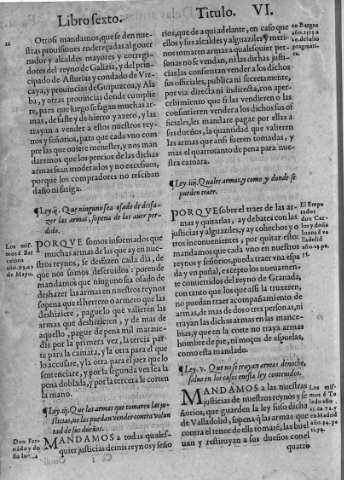 Libro sexto.
Titulo. VI.
Otrosi mandamos, que se den nuestras
prouisiones endereçadas al gouernador
y alcaldes mayores y corregidores
del reyno de Galizia, y del principado
de Asturias y condado de Vizcaya,
y prouincias de Guipuzcoa, y Alaba,
y otras prouincias donde cumpliere,
para que luego se hagan muchas armas,
de fuste y de hierro y azero, y las
trayan a vender a ellos nuestros reynos
y señorios, para que cada vno compre
las que ouiere menester, y nos mandaremos
que los precios de las dichas
armas sean moderados y no excessiuos,
porque los compradores no resciban
daño ni fatiga.
¶Ley.ij. Que ninguno sea osado de desfazer
las armas, so pena de las auer perdido.
PORQVE somos informados que
muchas armas de las que ay en nuestros
reynos, se desfazen cada dia, de
que nos somos deseruidos: porende
mandamos que ninguno sea osado de
deshazer las armas en nuestros reynos
so pena que el herrero o armero que las
deshiziere, pague lo que valieren las
armas que deshizieren, y de mas de
aquello, pague de pena mil marauedis
por la primera vez, la tercia parte
para la camara, y la otra para el que
lo accusare, y la otra para el juez que lo
sentenciare, y por la segunda vez sea la
pena doblada, y por la tercera le corten
la mano.
¶Ley.iij. Que las armas que tomaren las justicias,
no las puedan vender contra voluntad
de sus dueños.
MANDAMOS a todas qualesquier
justicias de mis reynos y señorios,
que de aqui adelante, en caso que
ellos y sus alcaldes y alguaziles y merinos
tomaren armas a qualesquier personas
no se vendan, ni las dichas justicias,
consientan vender a los dichos
sus officiales, publica ni secretamente,
por via directa ni indirecta, con apercebimiento
que si las vendieren o las
consintieren vender a los dichos sus officiales,
mandare pagar por ellas a
sus dueños, la quantidad que valieren
las armas que ansi fueren tomadas, y
mas el quatrotanto de pena para nuestra
camara.
¶Ley.iiij. Quales armas, y como y donde se
pueden traer.
PORQVE sobre el traer de las armas
y quitarlas, ay debates con las
justicias y alguaziles, y ay cohechos y
otros inconuenientes, por quitar esto
mandamos que cada vno en nuestros
reynos y señorios, pueda traer vna espada
y vn puñal, excepto los nueuamente
conuertidos del reyno de Granada,
con tanto que los que assi la truxeren,
no puedan traer acompañamiento de
armas, de mas de dos o tres personas, ni
trayan las dichas armas en las mancebias,
y que en la corte no traya armas
hombre de pie, ni moços de espuelas,
como esta mandado.
¶Ley.v. Que no se trayan armas de noche,
saluo en los casos en esta ley contenidos.
MANDAMOS a las nuestras
justicias de nuestros reynos y señorios,
que guarden la ley suso dicha
de Valladolid, so pena que las armas que
contra el tenor de ella tomaren, las bueluan
y restituyan a sus dueños con el
quatro